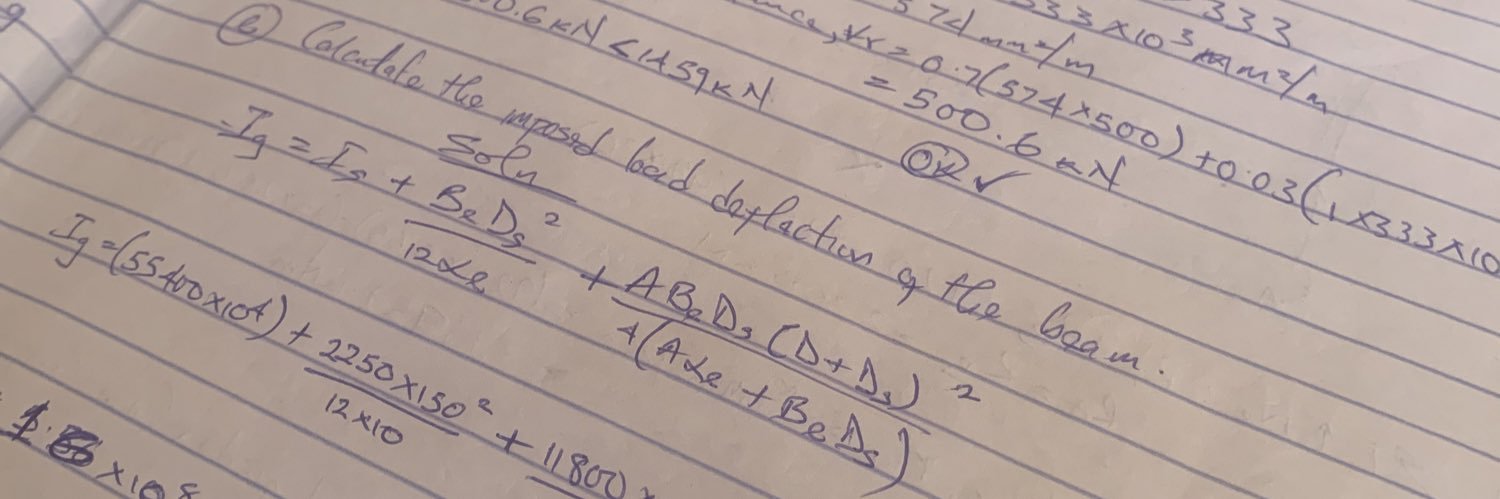 333
333 × 10³ mm²/m
574 mm²/m
Vr = 0.7(574×500) + 0.03(1×333×10
= 500.6 kN
0.6 kN < 1459 kN
OK ✓
(b) Calculate the imposed load deflection of the beam.
Soln
Ig = Is + BeDs² / 12αe + ABeDs(D+Ds)² / 4(Aαe + BeDs)
Ig = (55400×10⁴) + 2250×150² / 12×10 + 11800 ×
× 10⁸